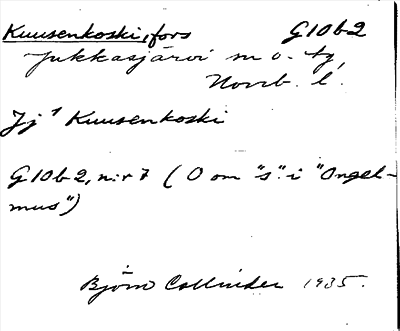 Kuusenkoski, fors G10b2
Jukkasjärvi sn o. tg,
Norrb. l.
Jj¹ Kuusenkoski
G10b2, n:r 7 (O om "s" i "Ongel-
mus")
Björn Collinder 1935.